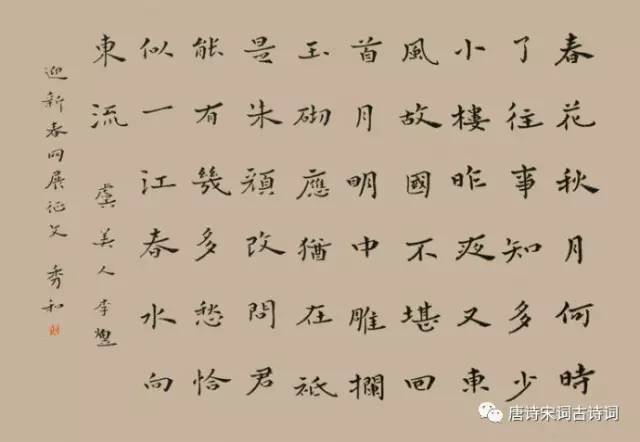 春花秋月何時
了往事知多少
小樓昨夜又東
風故國不堪回
首月明中雕欄
玉砌應猶在祗
是朱顏改問君
能有幾多愁恰
似一江春水向
東流
虞美人李煜
迎新春网展征文 秀和
唐诗宋词古诗词